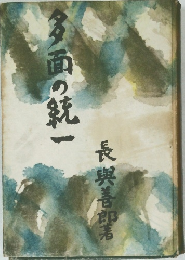 多面の統一
長與善郎著